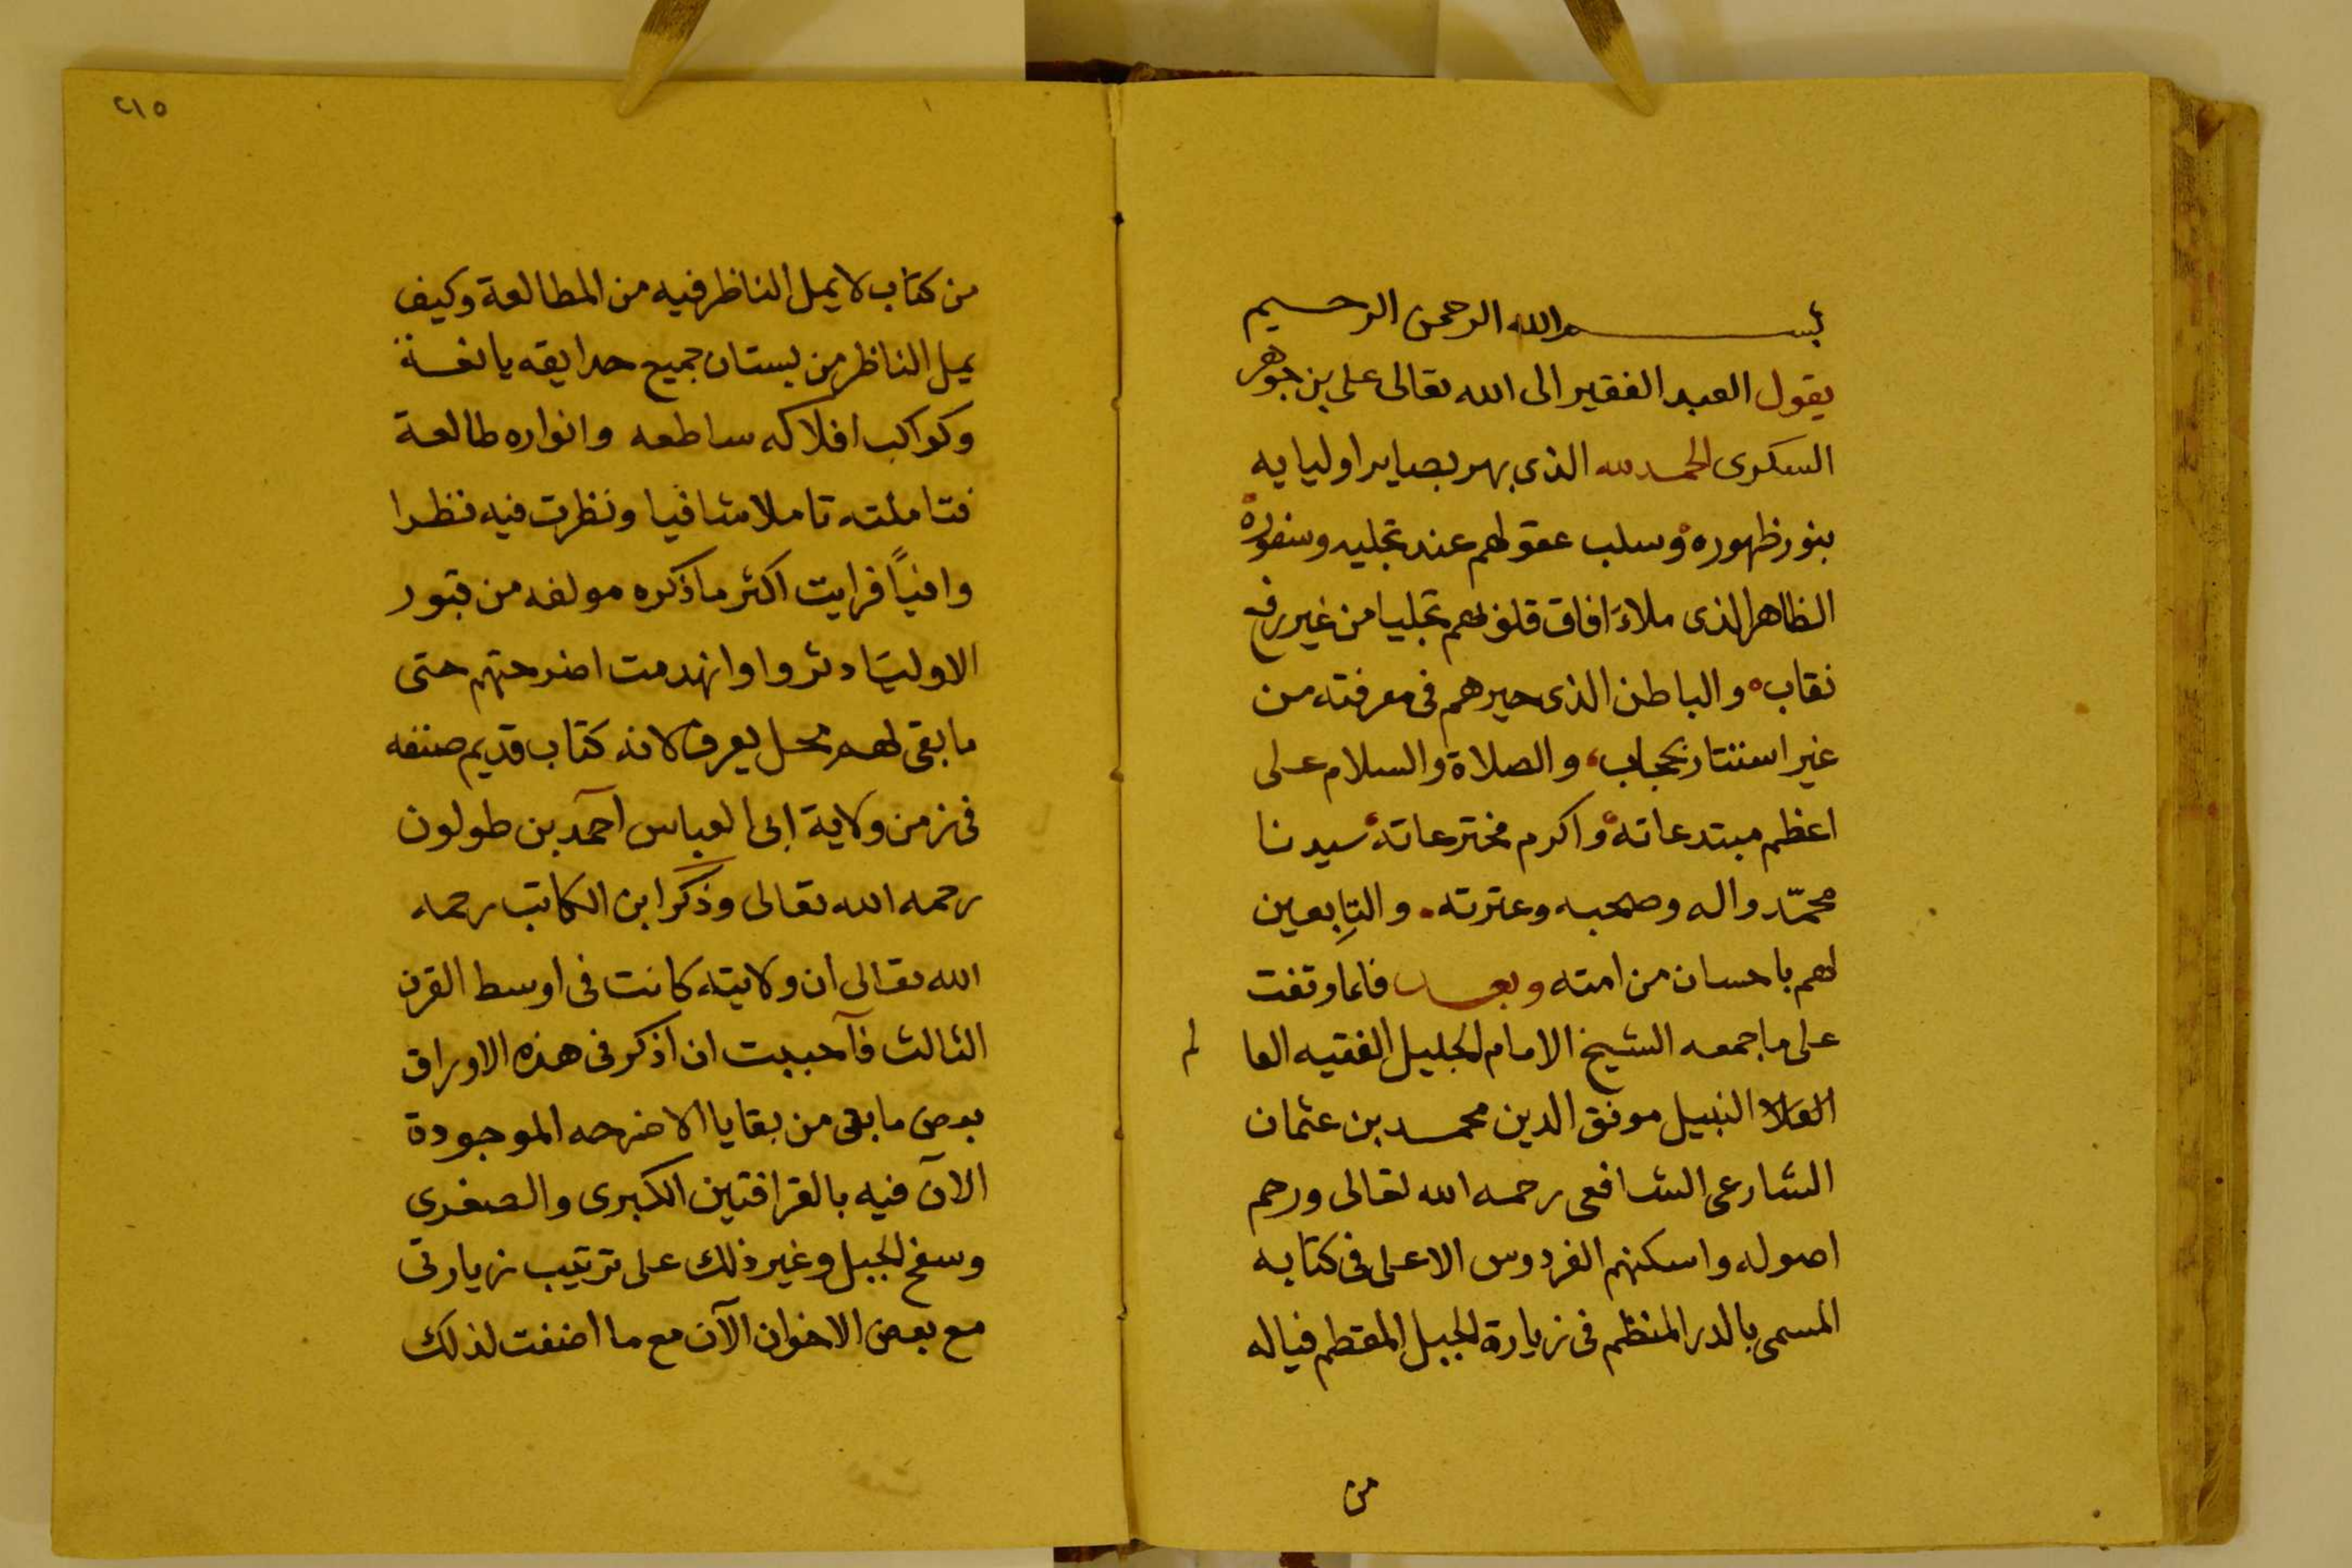 بسم الله الرحمن الرحيم
يقول العبد الفقير الى الله تعالى على بن جوهر
السكرى الحمد لله الذى بهر بصاير اوليايه
بنور ظهوره وسلب عقولهم عند تجليه وسفوره
الظاهر الذى ملاء افاق قلوبهم تجليا من غير رفع
نقاب والباطن الذى حيرهم فى معرفته من
غير استتار بحجاب، والصلاة والسلام على
اعظم مبتدعاته واكرم مخترعاته سيدنا
محمّد واله وصحبه وعترته. والتابعين
لهم باحسان من امته وبعد فلما وقفت
على ما جمعه الشيخ الامام الجليل الفقيه العالم
النبيل موفق الدين محمد بن عثمان
الشارعى الشافعى رحمه الله تعالى ورحم
اصوله واسكنهم الفردوس الاعلى فى كتابه
المسمى بالدر المنظم فى زيارة الجبل المقطم فياله
من
٢١٥
من كتاب لا يمل الناظر فيه من المطالعة وكيف
يمل الناظر من بستان جميع حدايقه يانعة
وكواكب افلاكه ساطعه وانواره طالعة
فتاملته تاملا شافيا ونظرت فيه نظرا
وافياً فرايت اكثر ما ذكره مولفه من قبور
الاوليَا دثروا وانهدمت اضرحتهم حتى
ما بقى لهم محل يعرف لانه كتاب قديم صنفه
فى زمن ولاية ابى العباس آحمد بن طولون
رحمه الله تعالى وذكر ابن الكاتب رحمه
الله تعالى ان ولايته كانت فى اوسط القرن
الثالث فآحببت ان اذكر فى هذه الاوراق
بعض ما بقى من بقايا الاضرحه الموجودة
الآن فيه بالقرافتين الكبرى والصغرى
وسفح الجبل وغير ذلك على ترتيب زيارتى
مع بعض الاخوان الآن مع ما اضفت لذلك